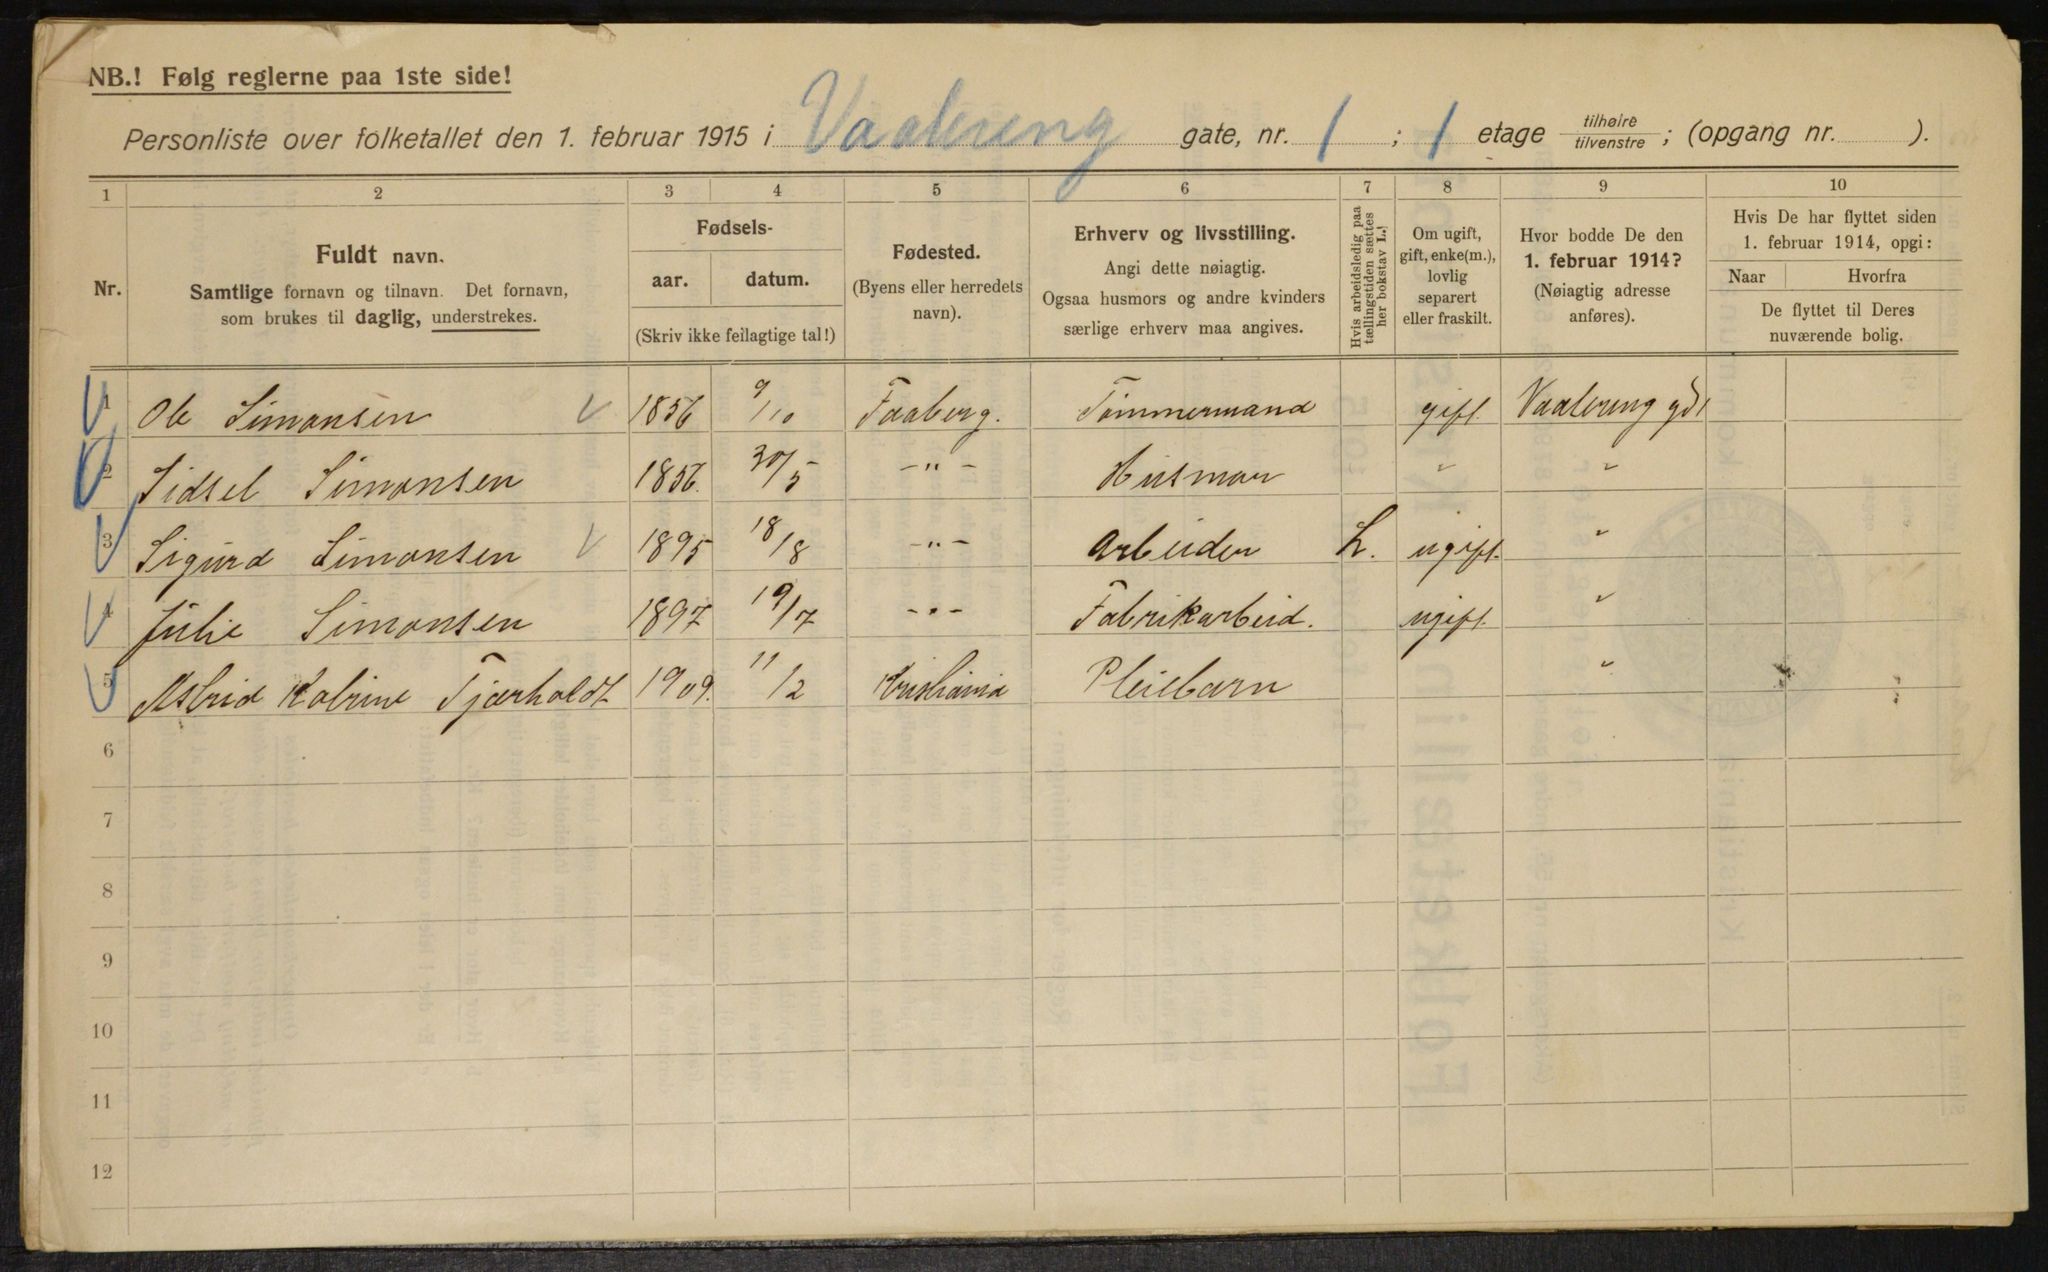 NB.! Følg reglerne paa 1ste side!
Personliste over folketallet den 1. februar 1915 i Vaalereng gate, nr. 1 ; 1 etage tilhøire / tilvenstre ; (opgang nr. ).
1 2 3 4 5 6 7 8 9 10
Nr.
Fuldt navn.
Samtlige fornavn og tilnavn. Det fornavn,
som brukes til daglig, understrekes.
Fødsels-
aar. datum.
(Skriv ikke feilagtige tal!)
Fødested.
(Byens eller herredets
navn).
Erhverv og livsstilling.
Angi dette nøiagtig.
Ogsaa husmors og andre kvinders
særlige erhverv maa angives.
Hvis arbeidsledig paa
tællingstiden sættes
her bokstav L.
Om ugift,
gift, enke(m.),
lovlig
separert
eller fraskilt.
Hvor bodde De den
1. februar 1914?
(Nøiagtig adresse
anføres).
Hvis De har flyttet siden
1. februar 1914, opgi:
Naar Hvorfra
De flyttet til Deres
nuværende bolig.
1 Ole Simonsen 1856 9/10 Faaberg. Tømmermand gift. Vaalereng gd 1
2 Sidsel Simonsen 1856. 30/5 -"- Husmor " "
3 Sigurd Simonsen 1895 18/8 -"- Arbeider L. ugift. "
4 Julie Simonsen 1897 19/7 -"- Fabrikarbeid. ugift. "
5 Astrid Katrine Tjærholdt 1909. 11/2 Kristiania Pleiebarn "
6
7
8
9
10
11
12